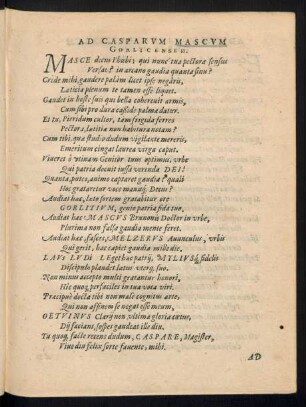 AD CASPARVM MASCVM
GORLICENSEM.
MASCE decus Phœbi; qui nunc tua pectora sensus
Versat? in arcano gaudia quanta sinu?
Crede mihi, gaudere palàm licet ipse negaris,
Lætitia plenum te tamen esse liquet.
Gaudet in hoste suo qui bella coherceit armis,
Cum sibi pro dura casside palma datur.
Et tu, Pieridum cultor, tàm frigida ferres
Pectora, lætitiæ non habitura notam?
Cum tibi, quæ studio dudum vigilante mereris,
Emeritum cingat laurea virga caput.
Viveret ô vtinam Genitor tuus optimus, vrbe
Qui patria docuit iussa verenda DEI!
Quanta, putes, animo caperet gaudia? quali
Hoc grataretur voce manuq́; Decus?
Audiat hæc, læto fertem gratabitur ore
GORLITIVM, genio patria fida tuo.
Audiat hæc MASCVS Brunonis Doctor in vrbe,
Plurima non falsa gaudia mente feret.
Audiat hæc, fasces, MELZERVS Avunculus, vrbis
Qui gerit, hac capiet gaudia mille die.
LAVS LVDI Legethac patrij, MYLIVSq́; fidelis
Discipulo plaudet latus vterq, suo.
Non minus accepto multi gratantur honori,
Hic quoq, per faciles in tua vota viri.
Præcipuè docta tibi non malè cognitus arte,
Qui non affinem se negat esse tuum,
OETVINVS Clarij non vltima gloria cœtus,
Dij faciant, sospes gaudeat ille diu.
Tu quoq, facte recens dudum, CASPARE, Magister,
Viue diu felix sorte fauente, mihi.
AD